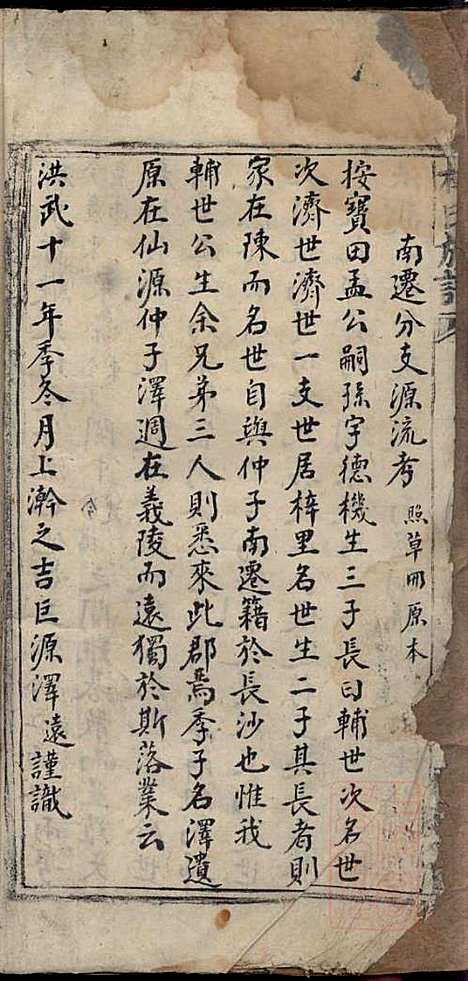 南遷分支源流考 照草冊原本
按寶田孟公嗣孫字德機生三子長曰輔世次名世
次濟世濟世一支世居梓里名世生二子其長者則
家在陳而名世自與仲子南遷籍於長沙也惟我
輔世公生余兄弟三人則悉來此郡焉季子名澤遺
原在仙源仲子澤週在義陵而遠獨於斯落業云
洪武十一年季冬月上澣之吉巨源澤遠謹識
氏族譜